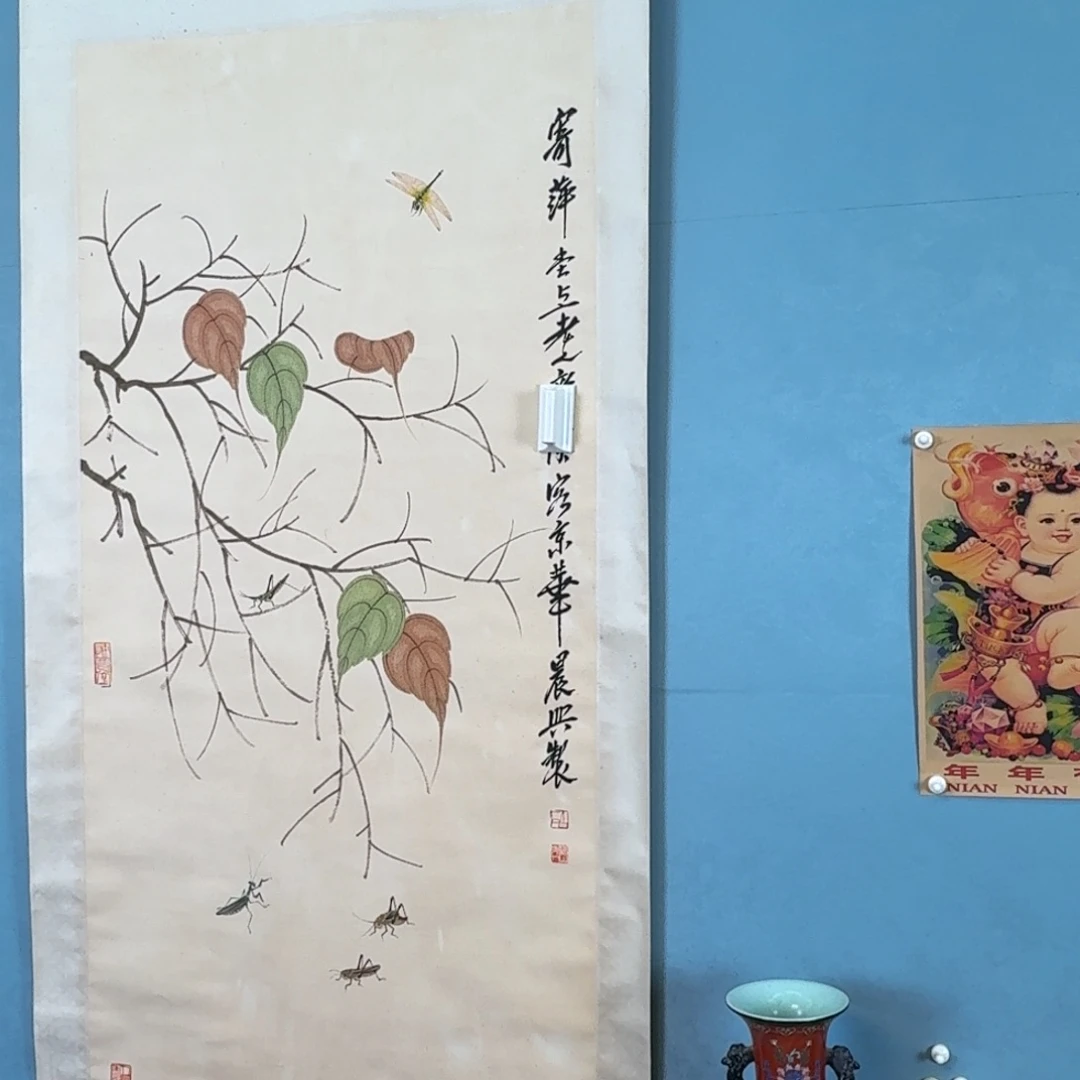 寄萍堂上老
客京華晨興製
年年
NIAN NIAN